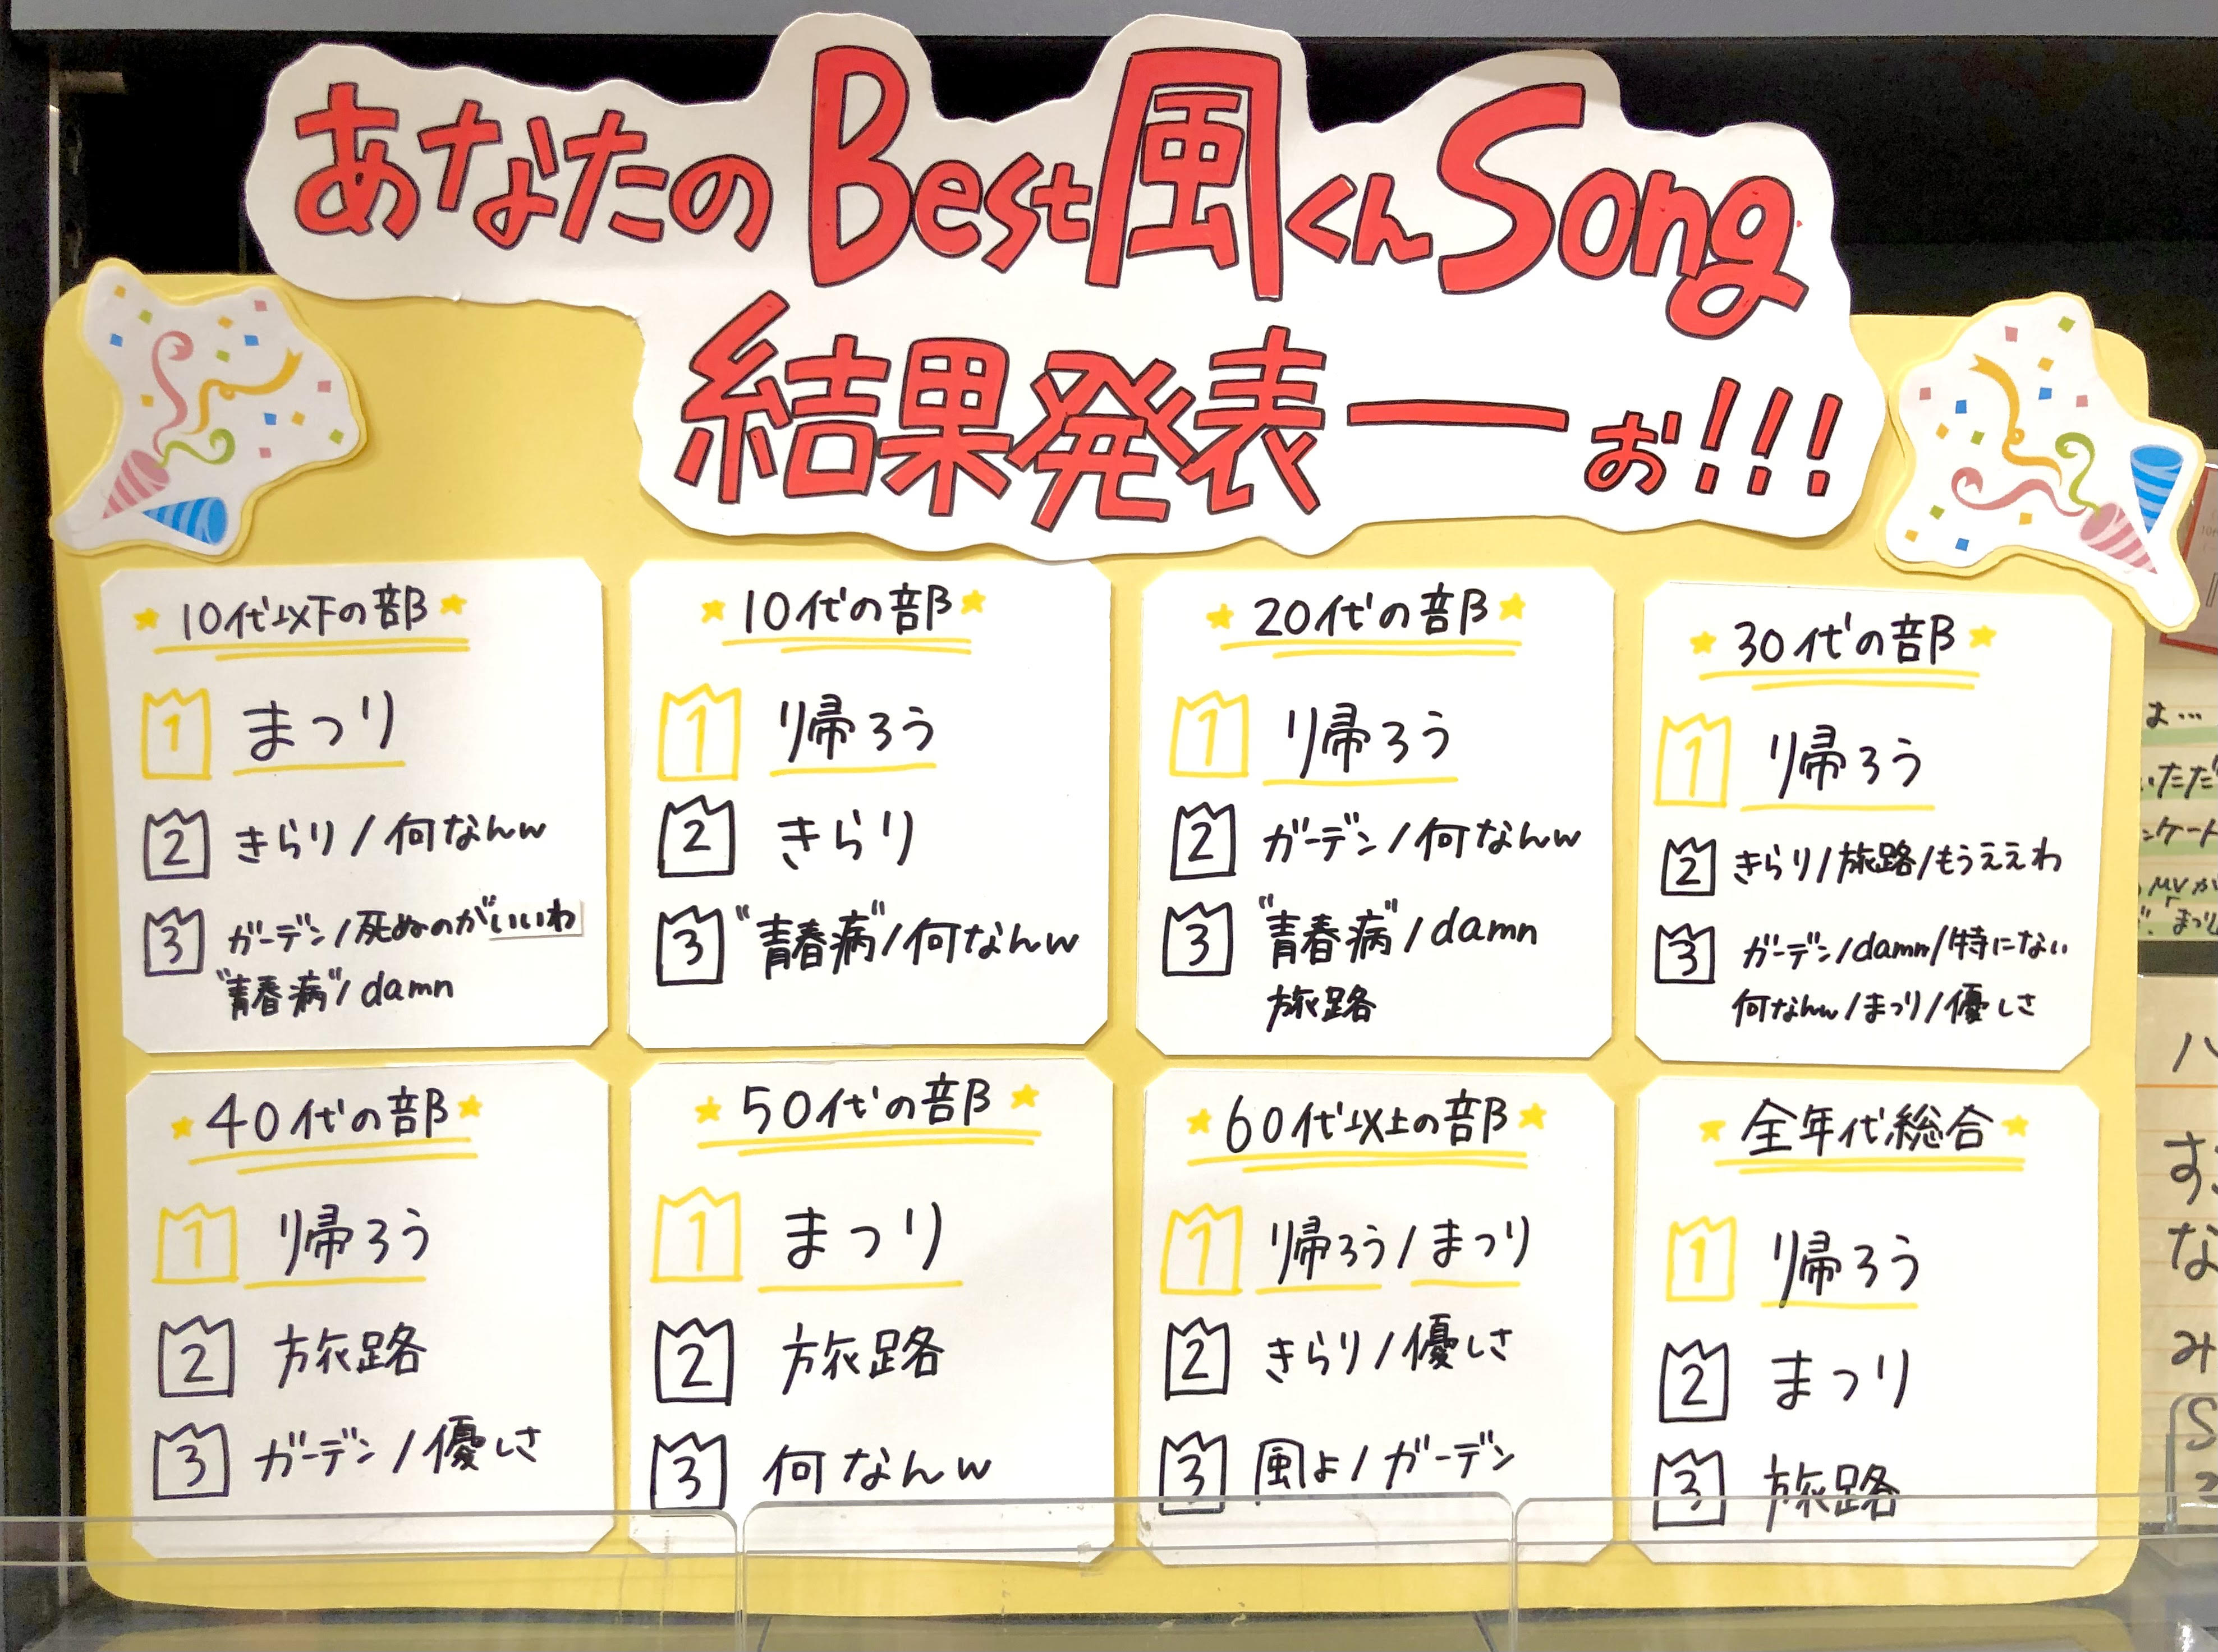 あなたのBest風くんSong
結果発表ーぉ!!!
★10代以下の部★
1 まつり
2 きらり/何なんw
3 ガーデン/死ぬのがいいわ
"青春病"/damn
★10代の部★
1 帰ろう
2 きらり
3 "青春病"/何なんw
★20代の部★
1 帰ろう
2 ガーデン/何なんw
3 "青春病"/damn
旅路
★30代の部★
1 帰ろう
2 きらり/旅路/もうええわ
3 ガーデン/damn/特にない
何なんw/まつり/優しさ
★40代の部★
1 帰ろう
2 旅路
3 ガーデン/優しさ
★50代の部★
1 まつり
2 旅路
3 何なんw
★60代以上の部★
1 帰ろう/まつり
2 きらり/優しさ
3 風よ/ガーデン
★全年代総合★
1 帰ろう
2 まつり
3 旅路